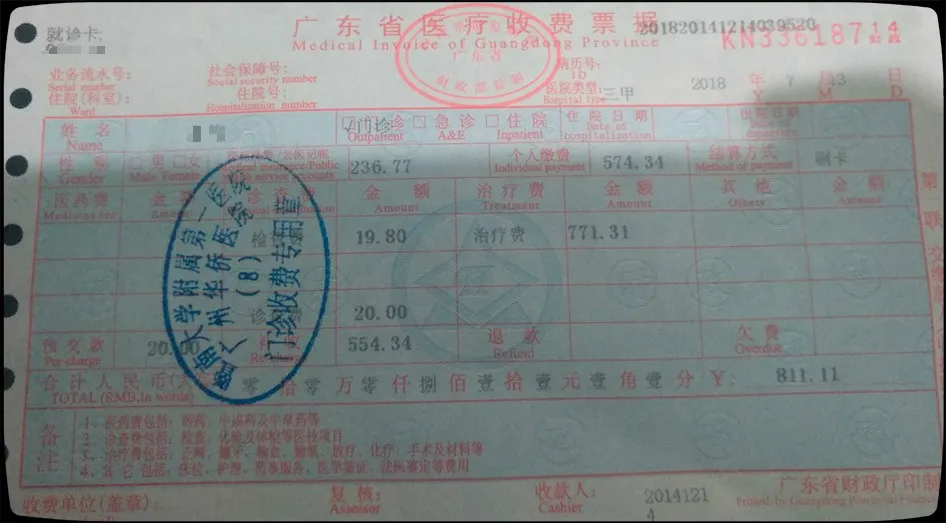 就诊卡:
广东省医疗收费票据
Medical Invoice of Guangdong Province
201820141214039520
KN33618714
业务流水号:
Serial number
社会保障号:
Social security number
病历号:
住院(科室):
Ward
住院号:
Hospitalization number
医院类型: 三甲
Hospital type
2018 年 7 月 13 日
Y M D
姓名
Name
门诊 □急诊 □住院
Outpatient A&E Inpatient
住院日期
Date of hospitalization
性别
Gender
□男 □女
Male Female
236.77
个人缴费
Individual payment
574.34
结算方式
Method of payment
刷卡
医药费
金额
Amount
治疗费
Treatment
金额
Amount
其他
Others
金额
Amount
19.80
治疗费
771.31
20.00
预交款
Pre-charge
20.00
554.34
退款
Refund
欠费
Overdue
合计人民币
TOTAL (RMB,in words)
零拾零万零仟捌佰壹拾壹元壹角壹分 ¥: 811.11
备注
1、医药费包括:西药、中成药及中草药等
2、诊查费包括:检查、化验及体检等医技项目
3、治疗费包括:正畸、镶牙、输血、输氧、放疗、化疗、手术及材料等
4、其它包括:床位、护理、药事服务、医学鉴证、法医鉴定等费用
收费单位(盖章):
复核:
Assessor
收款人:
Cashier
2014121
4
广东省财政厅印制
Printed by Guangdong Provincial Finance
广东省
财政部监制
暨南大学附属第一医院
广州华侨医院
(8)
门诊收费专用章
第
联